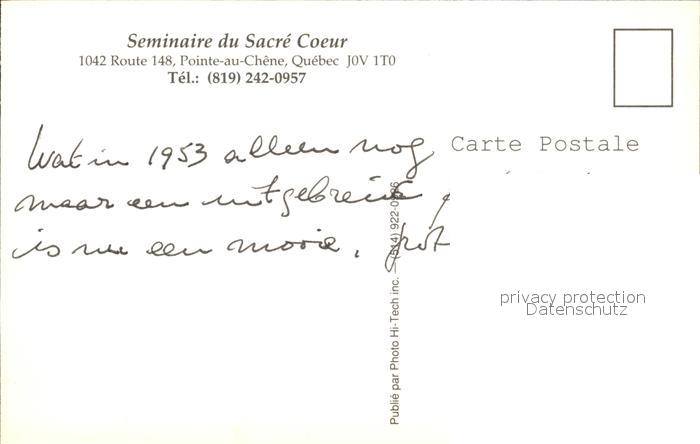 Seminaire du Sacré Coeur
1042 Route 148, Pointe-au-Chêne, Québec J0V 1T0
Tél.: (819) 242-0957
Carte Postale
Wat in 1953 alleen nog
maar een uitgebreide
is nu een mooie,
privacy protection
Datenschutz
Publié par Photo Hi-Tech inc. – (514) 922-